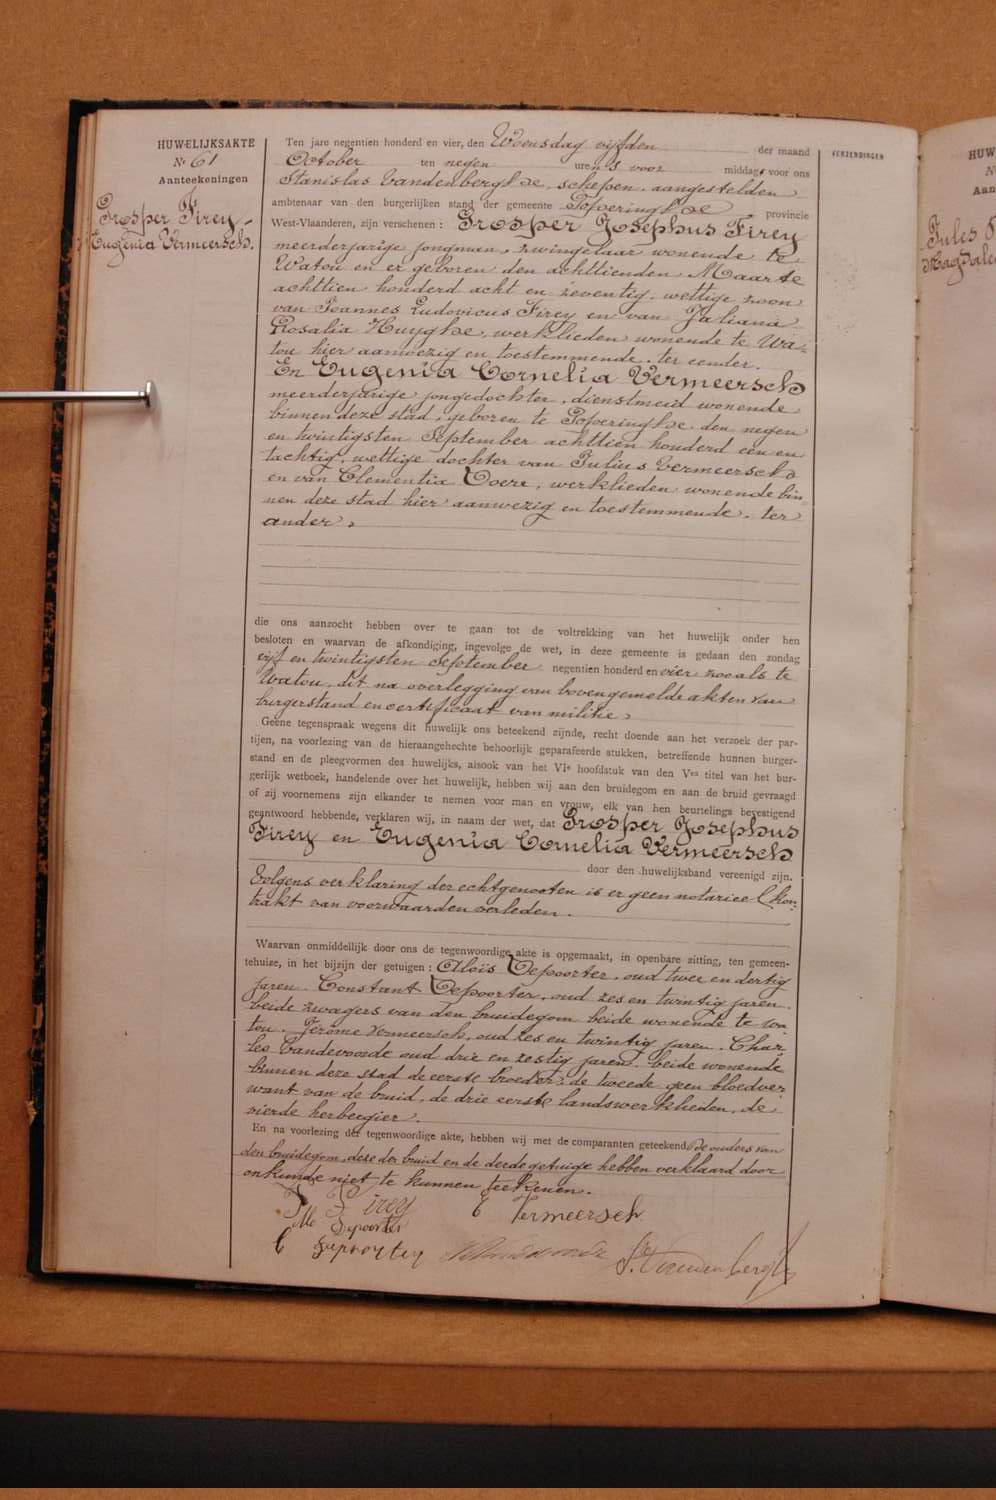 HUWELIJKSAKTE
Nr 61
Aanteekeningen
Prosper Firey
Eugenia Vermeersch.
Ten jare negentien honderd en vier, den Woensdag vijfden der maand
October ten negen uren 's voor middags voor ons
Stanislas Vandenberghe, schepen aangestelden
ambtenaar van den burgerlijken stand der gemeente Poperinghe provincie
West-Vlaanderen, zijn verschenen : Prosper Josephus Firey
meerderjarige jongman, zwingelaar wonende te
Watou en er geboren den achttienden Maarte
achttien honderd acht en zeventig, wettige zoon
van Joannes Ludovicus Firey en van Juliana
Rosalia Huyghe, werklieden wonende te Wa-
tou hier aanwezig en toestemmende, ter eender.
En Eugenia Cornelia Vermeersch
meerderjarige jongedochter, dienstmeid wonende
binnen deze stad, geboren te Poperinghe den negen
en twintigsten September achttien honderd een en
tachtig, wettige dochter van Julius Vermeersch
en van Clementia Doere, werklieden wonende bin-
nen deze stad hier aanwezig en toestemmende, ter
ander,
die ons aanzocht hebben over te gaan tot de voltrekking van het huwelijk onder hen
besloten en waarvan de afkondiging, ingevolge de wet, in deze gemeente is gedaan den zondag
vijf en twintigsten September negentien honderd en vier zoo als te
Watou, dit na overlegging van bovengemelde akten van
burgerstand en certificaat van militie,
Geene tegenspraak wegens dit huwelijk ons beteekend zijnde, recht doende aan het verzoek der par-
tijen, na voorlezing van de hieraangehechte behoorlijk geparafeerde stukken, betreffende hunnen burger-
stand en de pleegvormen des huwelijks, alsook van het VIe hoofdstuk van den Ven titel van het bur-
gerlijk wetboek, handelende over het huwelijk, hebben wij aan den bruidegom en aan de bruid gevraagd
of zij voornemens zijn elkander te nemen voor man en vrouw, elk van hen beurtelings bevestigend
geantwoord hebbende, verklaren wij, in naam der wet, dat Prosper Josephus
Firey en Eugenia Cornelia Vermeersch
door den huwelijksband vereenigd zijn.
Volgens verklaring der echtgenooten is er geen notarieel kon-
trakt van voorwaarden verleden.
Waarvan onmiddellijk door ons de tegenwoordige akte is opgemaakt, in openbare zitting, ten gemeen-
tehuize, in het bijzijn der getuigen : Aloïs Depoorter, oud twee en dertig
jaren. Constant Depoorter, oud zes en twintig jaren.
beide zwagers van den bruidegom beide wonende te Wa-
tou. Jerome Vermeersch, oud zes en twintig jaren. Char-
les Vandevoorde oud drie en zestig jaren. beide wonende
binnen deze stad de eerste broeder, de tweede geen bloedver-
want van de bruid, de drie eerste landswerklieden, de
vierde herbergier.
En na voorlezing der tegenwoordige akte, hebben wij met de comparanten geteekend De ouders van
den bruidegom, deze der bruid en de derde getuige hebben verklaard door
onkunde niet te kunnen teekenen.
P Firey E Vermeersch
Depoorter
C Depoorter
St. Vandenberghe
VERZENDINGEN
HUW
N
Aan
Jules
Magdale